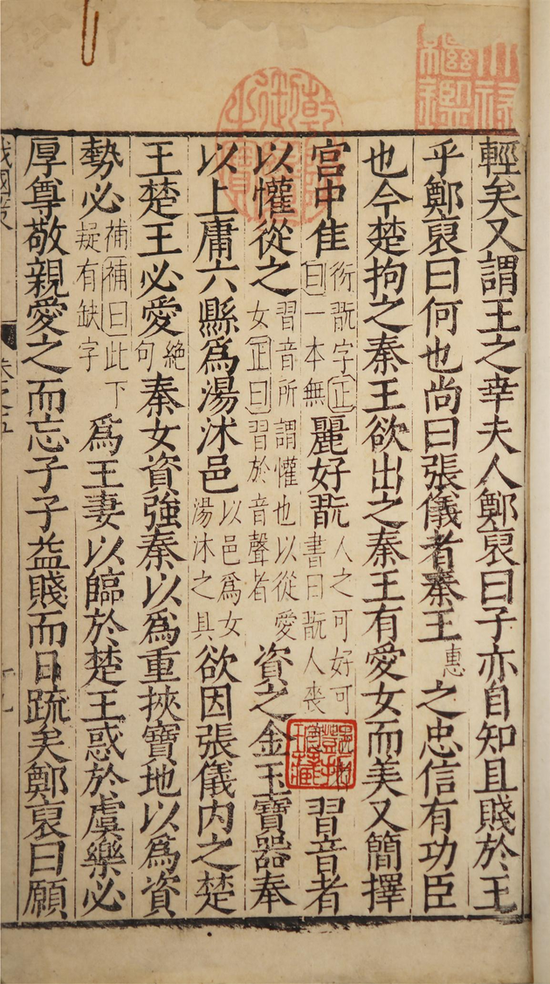 天祿繼鑑
乾隆御覽之寶
輕矣又謂王之幸夫人鄭褏曰子亦自知且賤於王
乎鄭褏曰何也尚曰張儀者秦王惠之忠信有功臣
也今楚拘之秦王欲出之秦王有愛女而美又簡擇
宫中佳衍翫字正曰一本無麗好翫人之可好可書曰翫人喪習音者
以懽從之習音所謂懽也以從愛女正曰習於音聲者資之金玉寶器奉
以上庸六縣爲湯沐邑以邑爲女湯沐之具欲因張儀内之楚
王楚王必愛絶句秦女資強秦以爲重挾寶地以爲資
勢必補補曰此下疑有缺字爲王妻以臨於楚王惑於虞樂必
厚尊敬親愛之而忘子子益賤而日疏矣鄭褏曰願